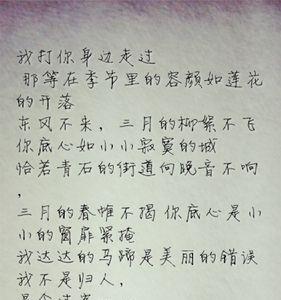 我打你身边走过
那等在季节里的容颜如莲花
的开落
东风不来，三月的柳絮不飞
你底心如小小寂寞的城
恰若青石的街道向晚音不响
，
三月的春帷不揭你底心是小
小的窗扉紧掩
我达达的马蹄是美丽的错误
我不是归人，
是个过客